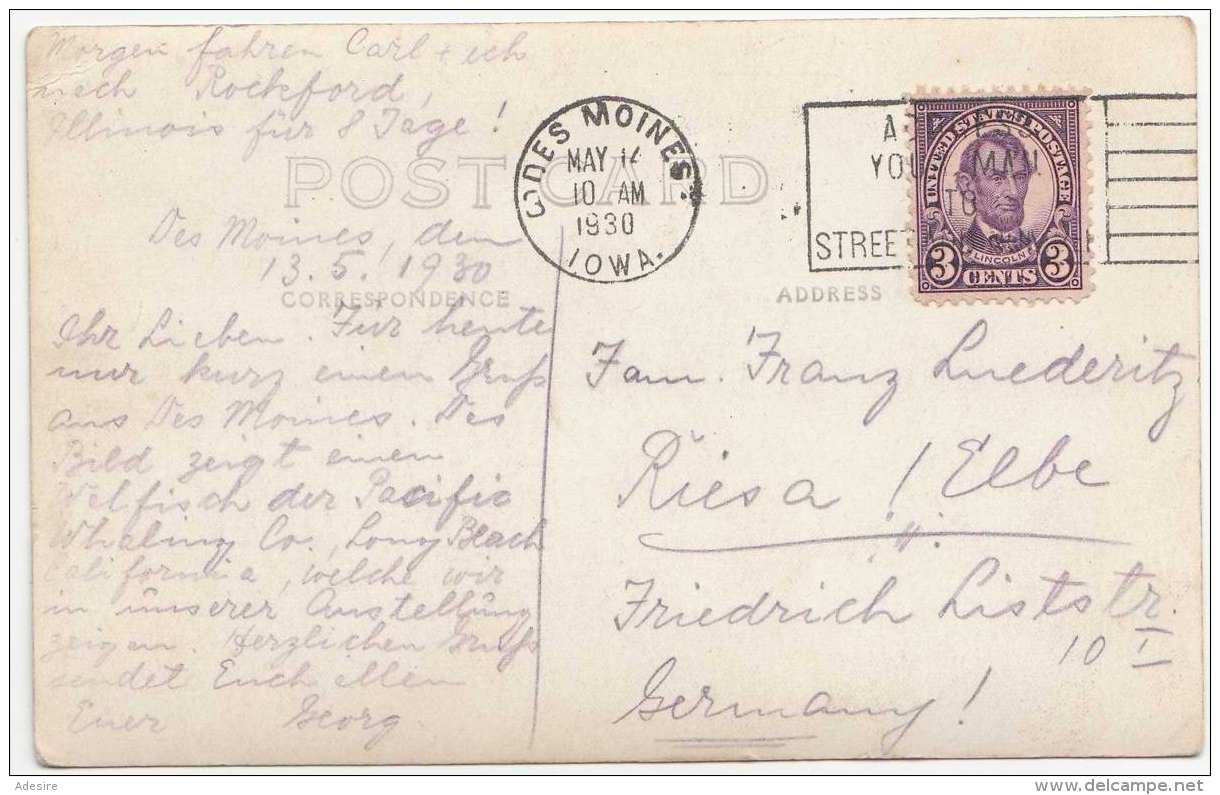 Morgen fahren Carl + ich
nach Rockford,
Illinois für 8 Tage!
POST CARD
DES MOINES
MAY 14
10 AM
1930
IOWA.
3
A
YOUR MAN
TO
STREE
UNITED STATES POSTAGE
LINCOLN
3 CENTS 3
Des Moines, den
13.5. 1930
CORRESPONDENCE
Ihr Lieben. Für heute
nur kurz einen Gruß
aus Des Moines. Das
Bild zeigt einen
Walfisch der Pacific
Whaling Co., Long Beach
California, welche wir
in unserer Austellung
zeigen. Herzlichen Gruß
sendet Euch allen
Euer Georg.
ADDRESS
Fam. Franz Luederitz
Riesa / Elbe
Friedrich Liststr.
10 I
Germany!
Adesire
www.delcampe.net